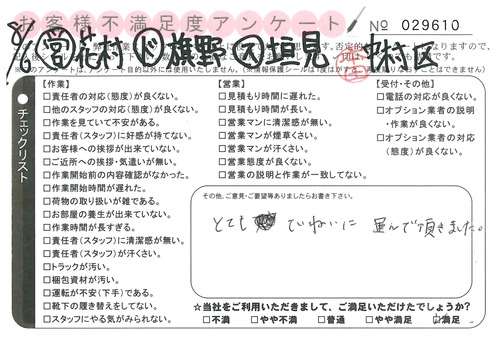 お客様不満足度アンケート
No 029610
8/6 ㊂花村 ド旗野 垣見 中村区
チェックリスト
【作業】
□責任者の対応(態度)が良くない。
□他のスタッフの対応(態度)が良くない。
□作業を見ていて不安がある。
□責任者(スタッフ)に好感が持てない。
□お客様への挨拶が出来ていない。
□ご近所への挨拶・気遣いが無い。
□作業開始前の内容確認がなかった。
□作業開始時間が遅れた。
□荷物の取り扱いが雑である。
□お部屋の養生が出来ていない。
□作業時間が長すぎる。
□責任者(スタッフ)に清潔感が無い。
□責任者(スタッフ)が汗くさい。
□トラックが汚い。
□梱包資材が汚い。
□運転が不安(下手)である。
□靴下の履き替えをしてない。
□スタッフにやる気がみられない。
【営業】
□見積もり時間に遅れた。
□見積もり時間が長い。
□営業マンに清潔感が無い。
□営業マンが煙草くさい。
□営業マンが汗くさい。
□営業態度が良くない。
□営業の説明と作業が一致してない。
【受付・その他】
□電話の対応が良くない。
□オプション業者の説明
・作業が良くない。
□オプション業者の対応
(態度)が良くない。
その他、ご意見・ご要望等ありましたらお書き下さい。
とても ていねいに 運んで頂きました。
☆当社をご利用いただきまして、ご満足いただけたでしょうか?
□不満 □やや不満 □普通 □やや満足 ☑満足